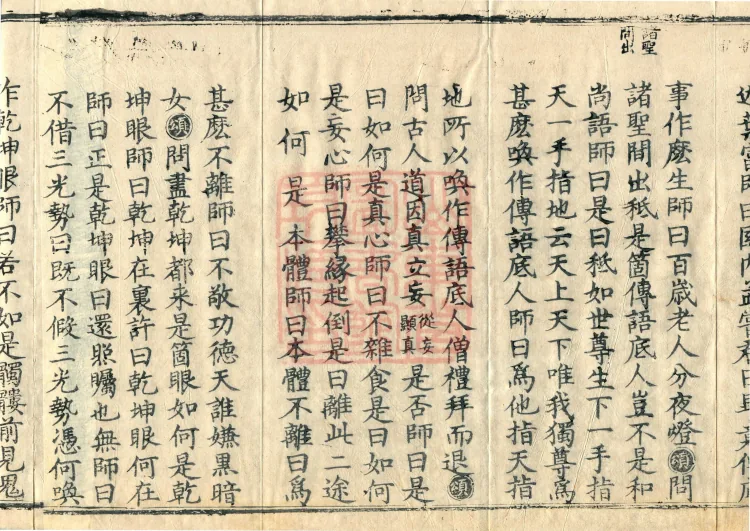 諸聖
間出
事作麼生師曰百歲老人分夜燈㊟問
諸聖間出秪是箇傳語底人豈不是和
尚語師曰是曰秪如世尊生下一手指
天一手指地云天上天下唯我獨尊爲
甚麼喚作傳語底人師曰爲他指天指
地所以喚作傳語底人僧禮拜而退頌
問古人道因真立妄從妄顯真是否師曰是
曰如何是真心師曰不雜食是曰如何
是妄心師曰攀緣起倒是曰離此二途
如何是本體師曰本體不離曰爲
甚麼不離師曰不敬功德天誰嫌黑暗
女頌問盡乾坤都來是箇眼如何是乾
坤眼師曰乾坤在裏許曰乾坤眼何在
師曰正是乾坤眼曰還照矚也無師曰
不借三光勢曰既不假三光勢憑何喚
作乾坤眼師曰若不如是髑髏前見鬼